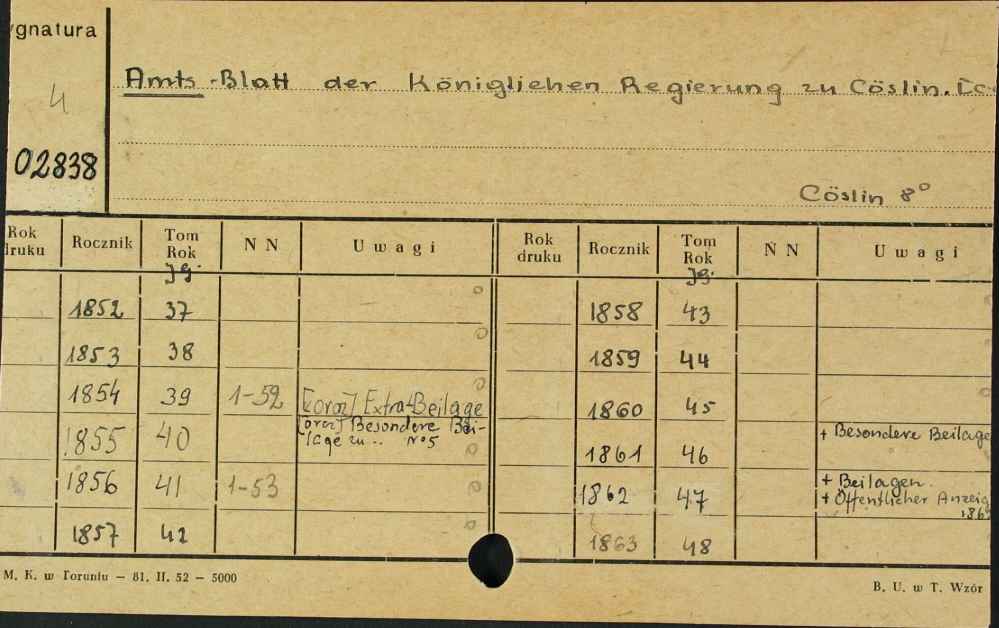 ygnatura
4
02838
Amts-Blatt der Königlichen Regierung zu Cöslin.
Cöslin 8°
Rok druku Rocznik Tom Rok N N Uwagi Rok druku Rocznik Tom Rok N N Uwagi
Jg. Jg.
1852 37 1858 43
1853 38 1859 44
1854 39 1-52 [oraz] Extra-Beilage 1860 45
1855 40 [oraz] Besondere Bei-
lage zu.. No 5 1861 46 + Besondere Beilage
1856 41 1-53 1862 47 + Beilagen.
+ Öffentlicher Anzeig
1857 42 1863 48
M. K. w Toruniu — 81. II. 52 — 5000
B. U. w T. Wzór